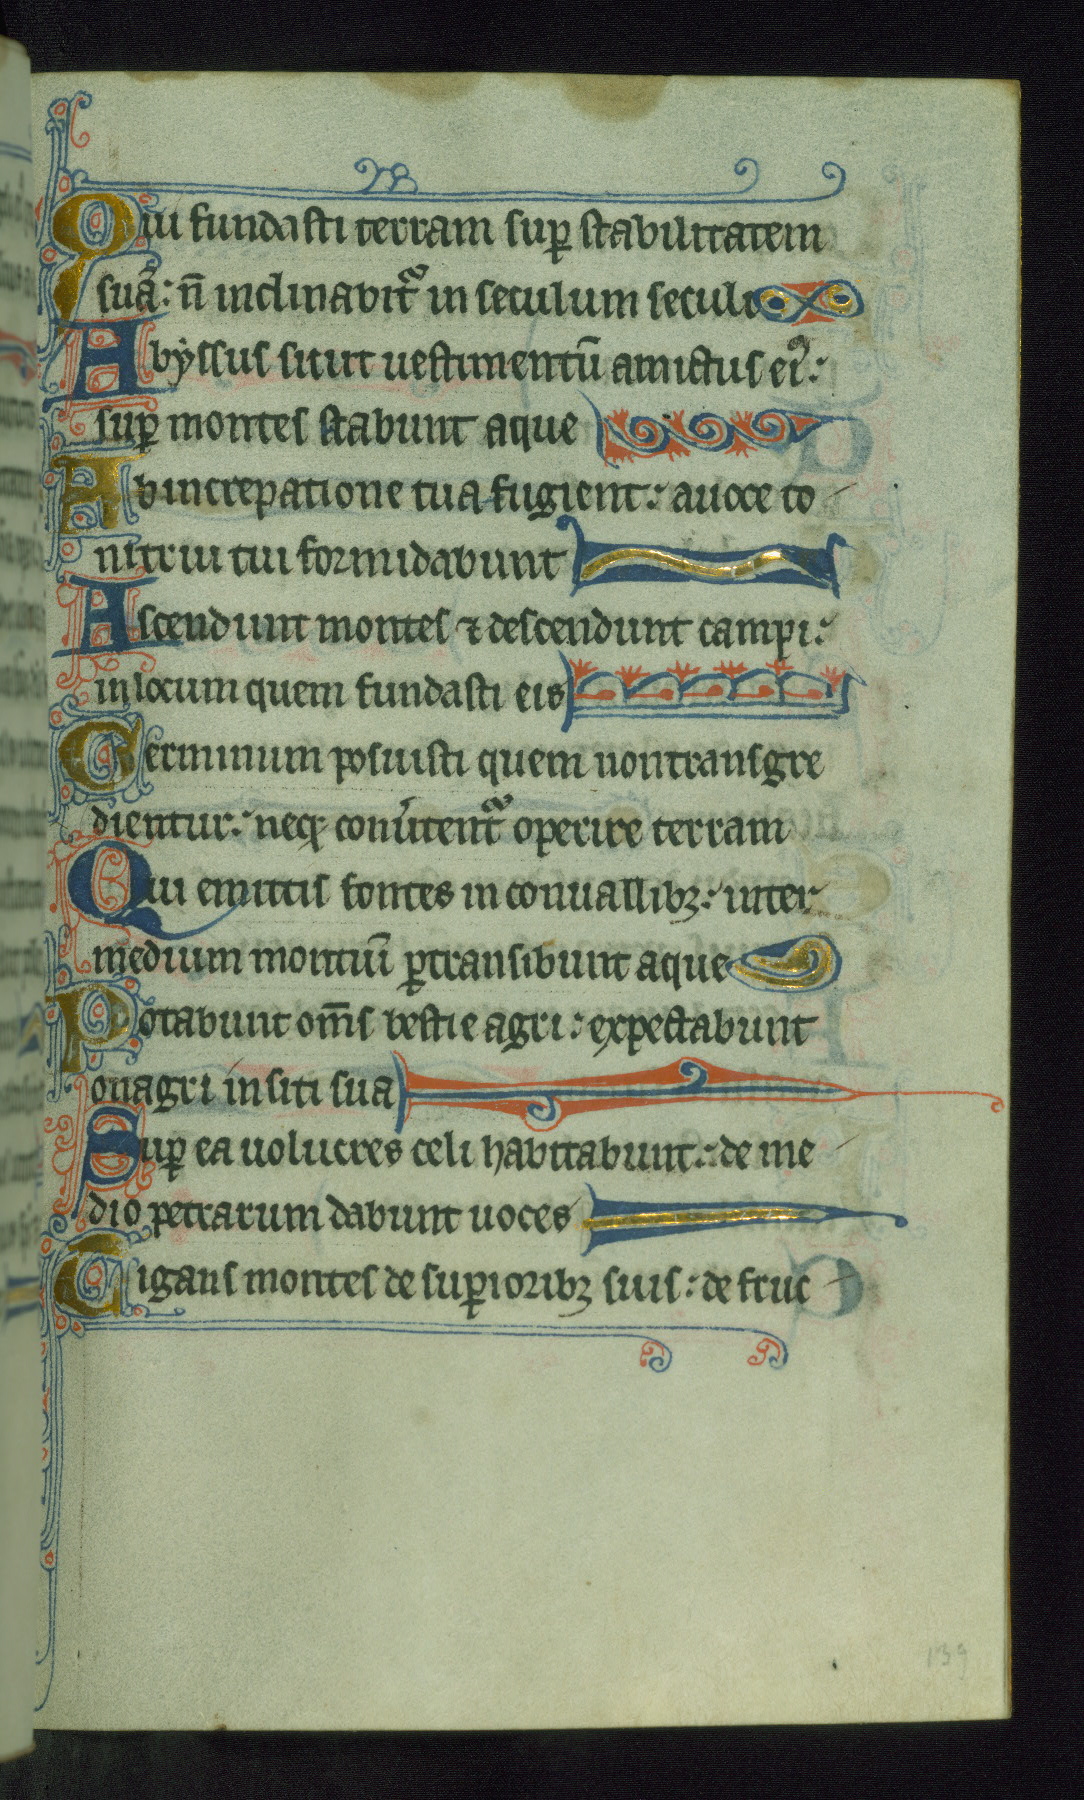 Qui fundasti terram sup̲ stabilitatem
suā: n̄ inclinabit᷑ in seculum seculi
Abyssus sicut uestimentū amictus eiꝰ:
sup̲ montes stabunt aque
Ab increpatione tua fugient: auoce to
nitrui tui formidabunt
Ascendunt montes ⁊ descendunt campi:
in locum quem fundasti eis
Terminum posuisti quem non transgre
dientur: neqꝫ conu͛tent᷑ operire terram
Qui emittis fontes in conuallibꝫ: inter
medium montiū ꝑtransibunt aque
Potabunt om̄s bestie agri: expectabunt
onagri in siti sua
Suꝑ ea uolucres celi habitabunt: de me
dio petrarum dabunt uoces
Rigans montes de suꝑioribꝫ suis: de fruc
139